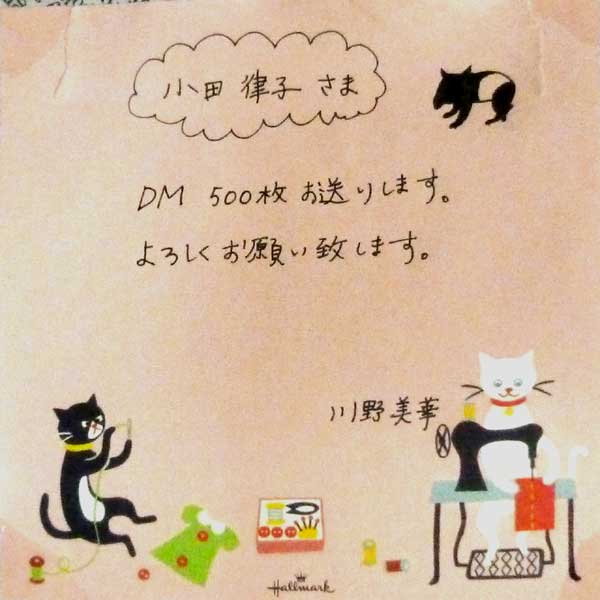 小田 律子 さま
DM 500枚 お送りします。
よろしくお願い致します。
川野美華
Hallmark